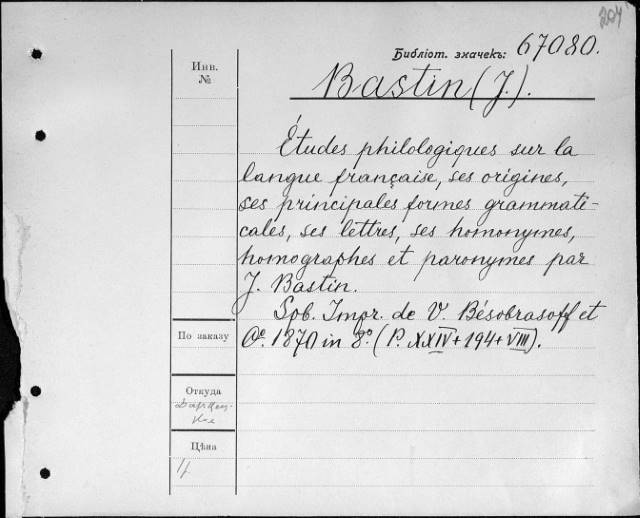 204
Библіот. значекъ: 67080.
Инв.
№
Bastin (J.).
Études philologiques sur la
langue française, ses origines,
ses principales formes grammati-
cales, ses lettres, ses homonymes,
homographes et paronymes par
J. Bastin.
Spb. Impr. de V. Bésobrasoff et
Cº. 1870 in 8º. (P. XXIV + 194 + VIII).
По заказу
Откуда
Цѣна